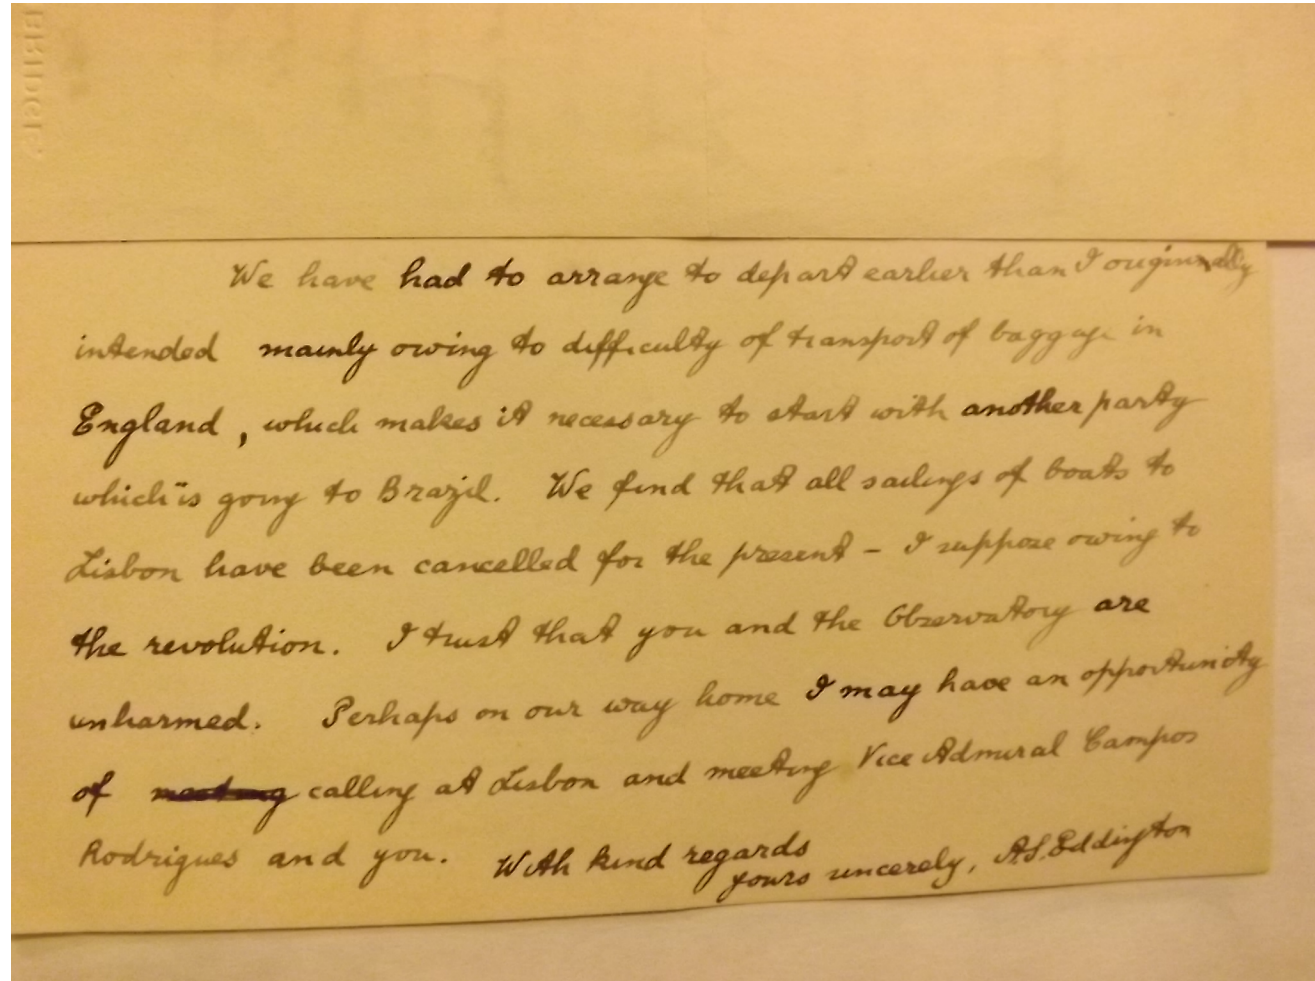 BRIDGE.
We have had to arrange to depart earlier than I originally
intended mainly owing to difficulty of transport of baggage in
England, which makes it necessary to start with another party
which is going to Brazil. We find that all sailings of boats to
Lisbon have been cancelled for the present - I suppose owing to
the revolution. I trust that you and the Observatory are
unharmed. Perhaps on our way home I may have an opportunity
of meeting calling at Lisbon and meeting Vice Admiral Campos
Rodrigues and you. With kind regards
yours sincerely, A.S. Eddington